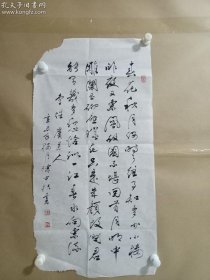 孔夫子旧书网
春花秋月何時了往事知多少小樓
昨夜又東風故國不堪回首月明中
雕闌玉砌應猶在只是朱顏改問君
能有幾多愁恰似一江春水向東流
李煜 虞美人